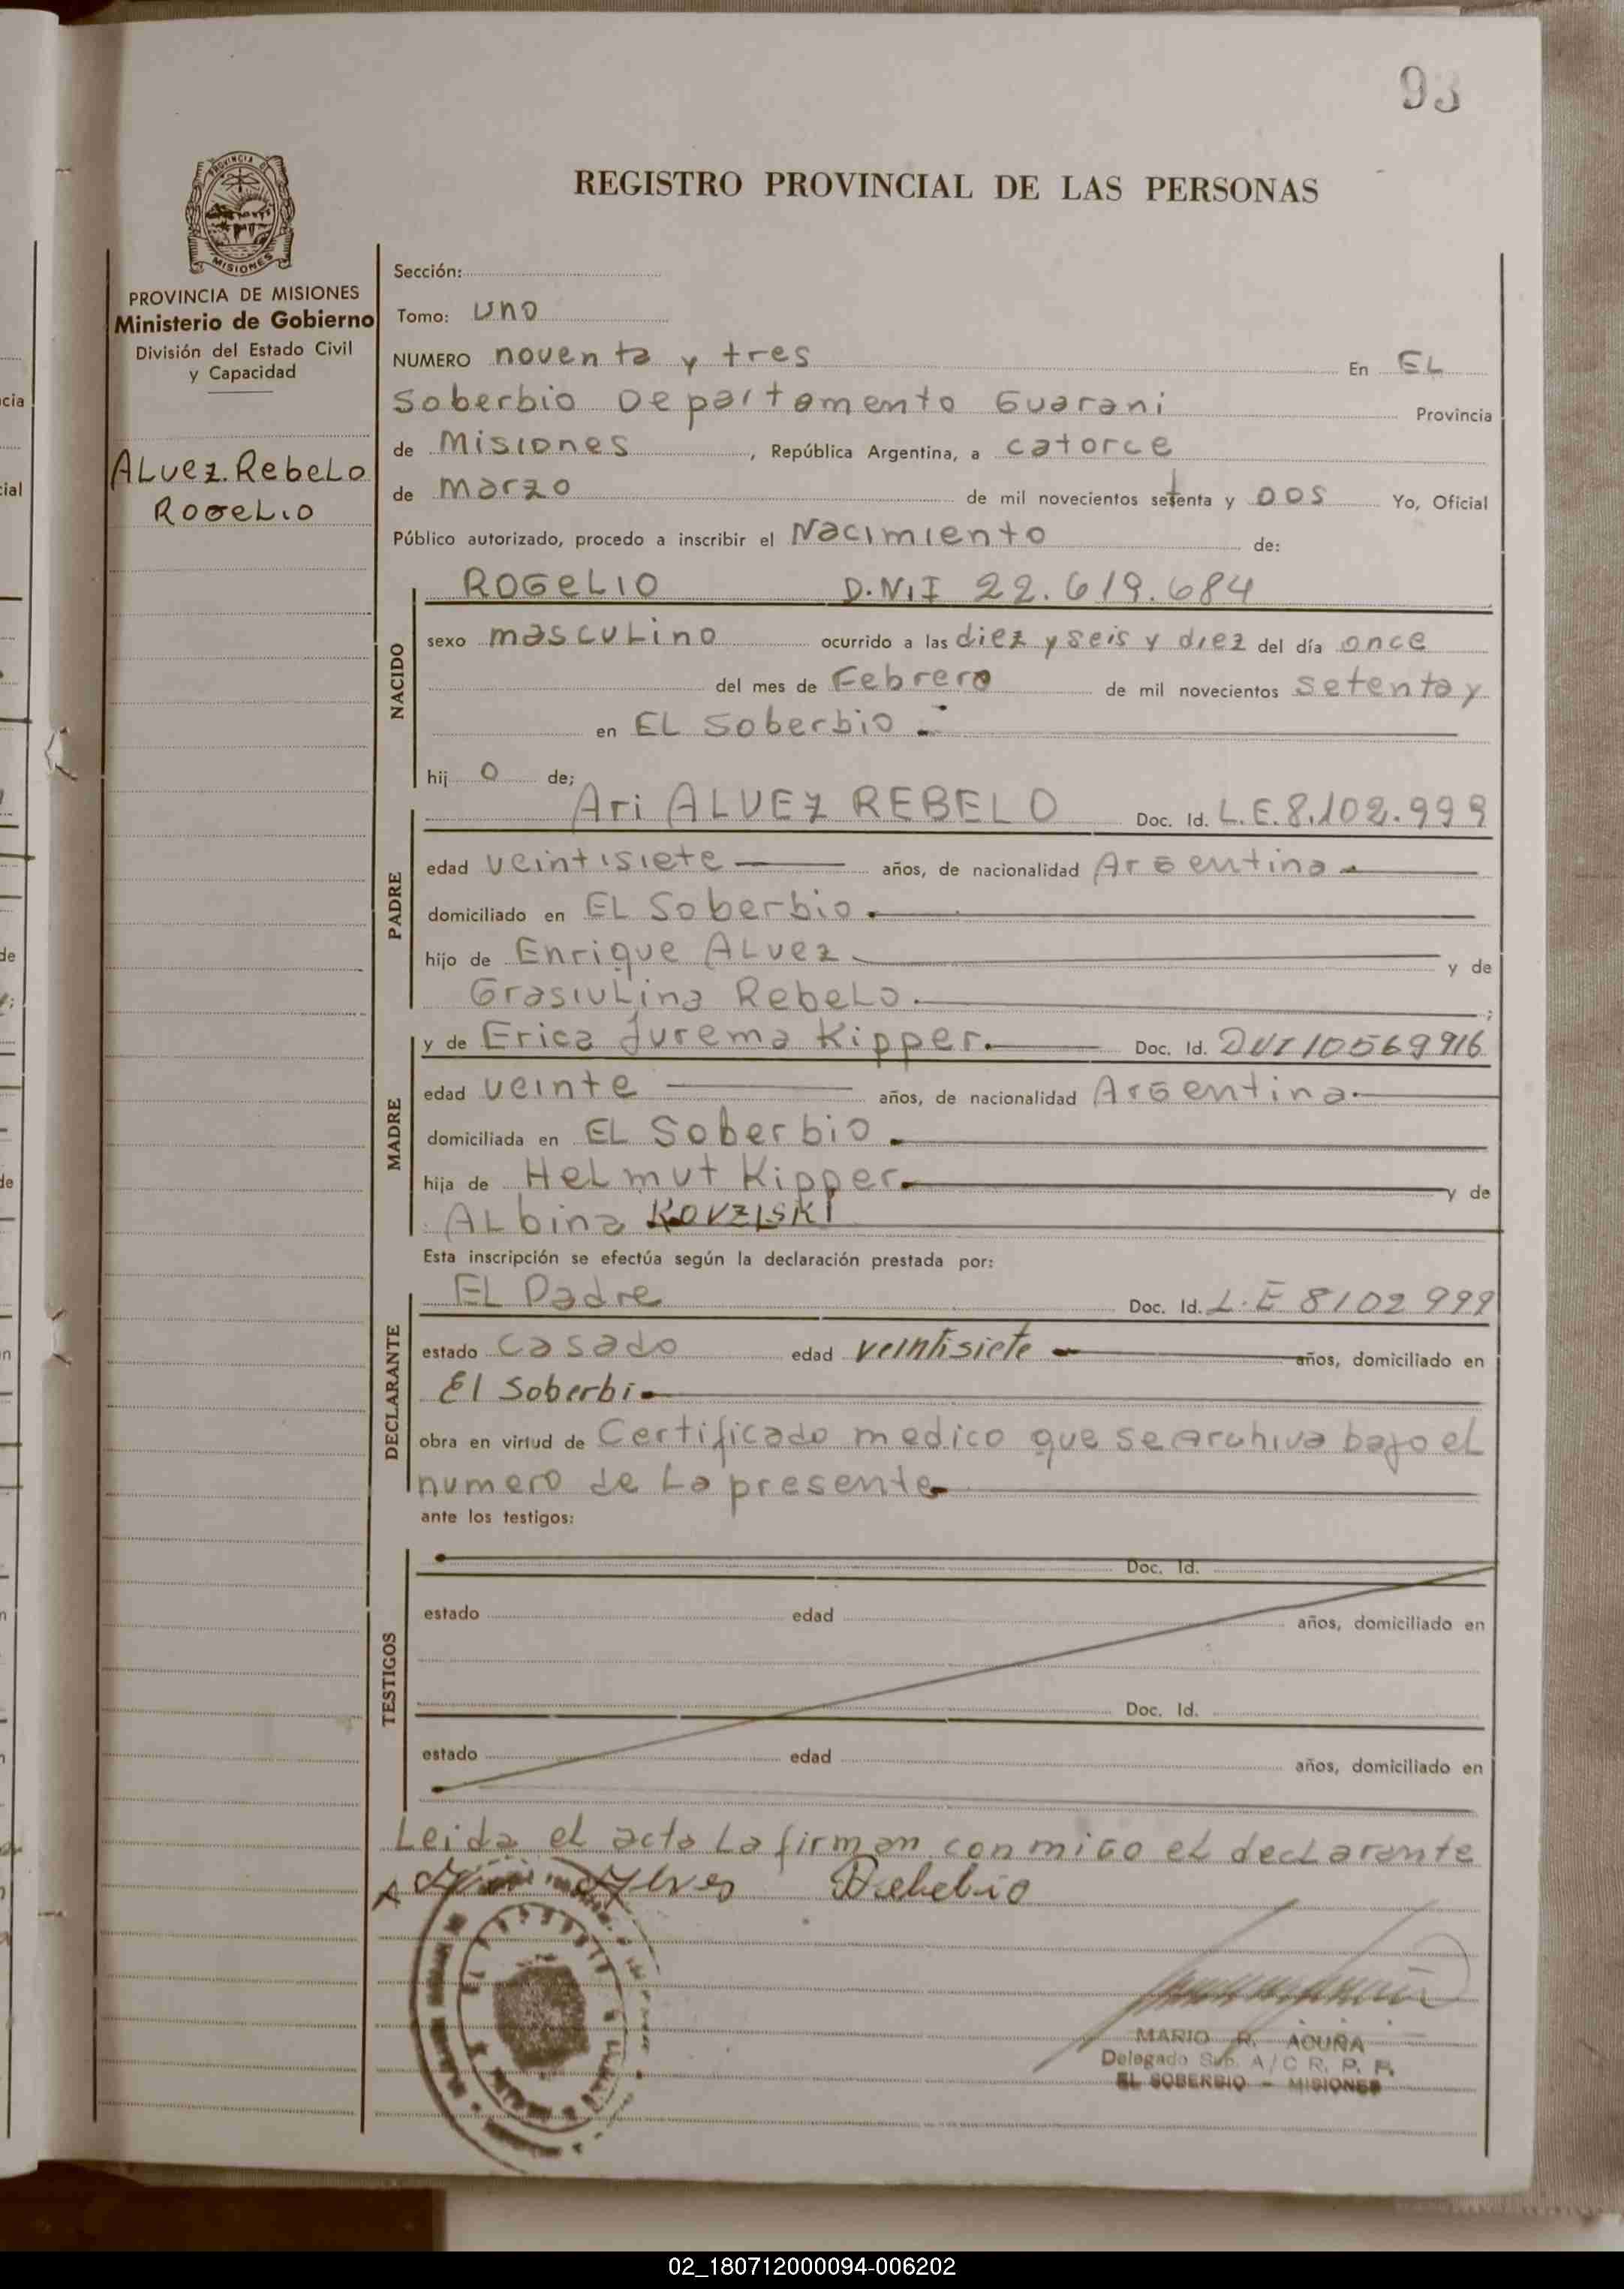 93
PROVINCIA DE
MISIONES
REGISTRO PROVINCIAL DE LAS PERSONAS
PROVINCIA DE MISIONES
Ministerio de Gobierno
División del Estado Civil
y Capacidad
ALvez RebeLo
RogeLio
Sección:
Tomo: uno
NUMERO noventa y tres En EL
Soberbio Departamento Guarani Provincia
de Misiones, República Argentina, a catorce
de marzo de mil novecientos setenta y DOS Yo, Oficial
Público autorizado, procedo a inscribir el Nacimiento de:
NACIDO
ROGELIO D.N.I 22.619.684
sexo mascuLino ocurrido a las diez y seis y diez del día once
del mes de Febrero de mil novecientos setenta y
en EL Soberbio
hij o de;
PADRE
Ari ALVEZ REBELO Doc. Id. L.E. 8.102.999
edad veintisiete años, de nacionalidad Argentina
domiciliado en EL Soberbio
hijo de Enrique ALvez y de
GrasiuLina RebeLo.
MADRE
y de Erica Jurema Kipper. Doc. Id. DNI 10569916
edad veinte años, de nacionalidad Argentina
domiciliada en EL Soberbio
hija de HeLmut Kipper y de
ALbina KOVZLSKI
Esta inscripción se efectúa según la declaración prestada por:
DECLARANTE
EL Padre Doc. Id. L.E 8102999
estado casado edad veintisiete años, domiciliado en
El Soberbi
obra en virtud de Certificado medico que se archiva bajo eL
numero de La presente
ante los testigos:
TESTIGOS
Doc. Id.
estado edad años, domiciliado en
Doc. Id.
estado edad años, domiciliado en
Leida el acta La firman conmigo eL decLarante
Alves Rebebio
MARIO R. ACUÑA
Delegado Sup. A/C R. P. P.
EL SOBERBIO - MISIONES
02_180712000094-006202